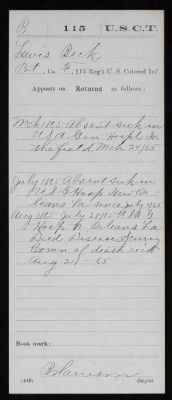 B 115 U.S.C.T.
Lewis Beck
Pvt, Co. F, 115 Reg't U. S. Colored Inf
Appears on Returns as follows:
Mch 1865 Absent sick in
U.S.A. Gen Hospl. for
the field Mch 24/65
July 1865 Absent sick in
U.S.G. Hosp New Or-
leans La since July 1/65
Aug 1865 July 28/65 U.S.A.G.
Hosp. N. Orleans La
Died Disease Scurvy
Comn. of death recd.
Aug 28 - 65
Book mark:
(546) Copyist